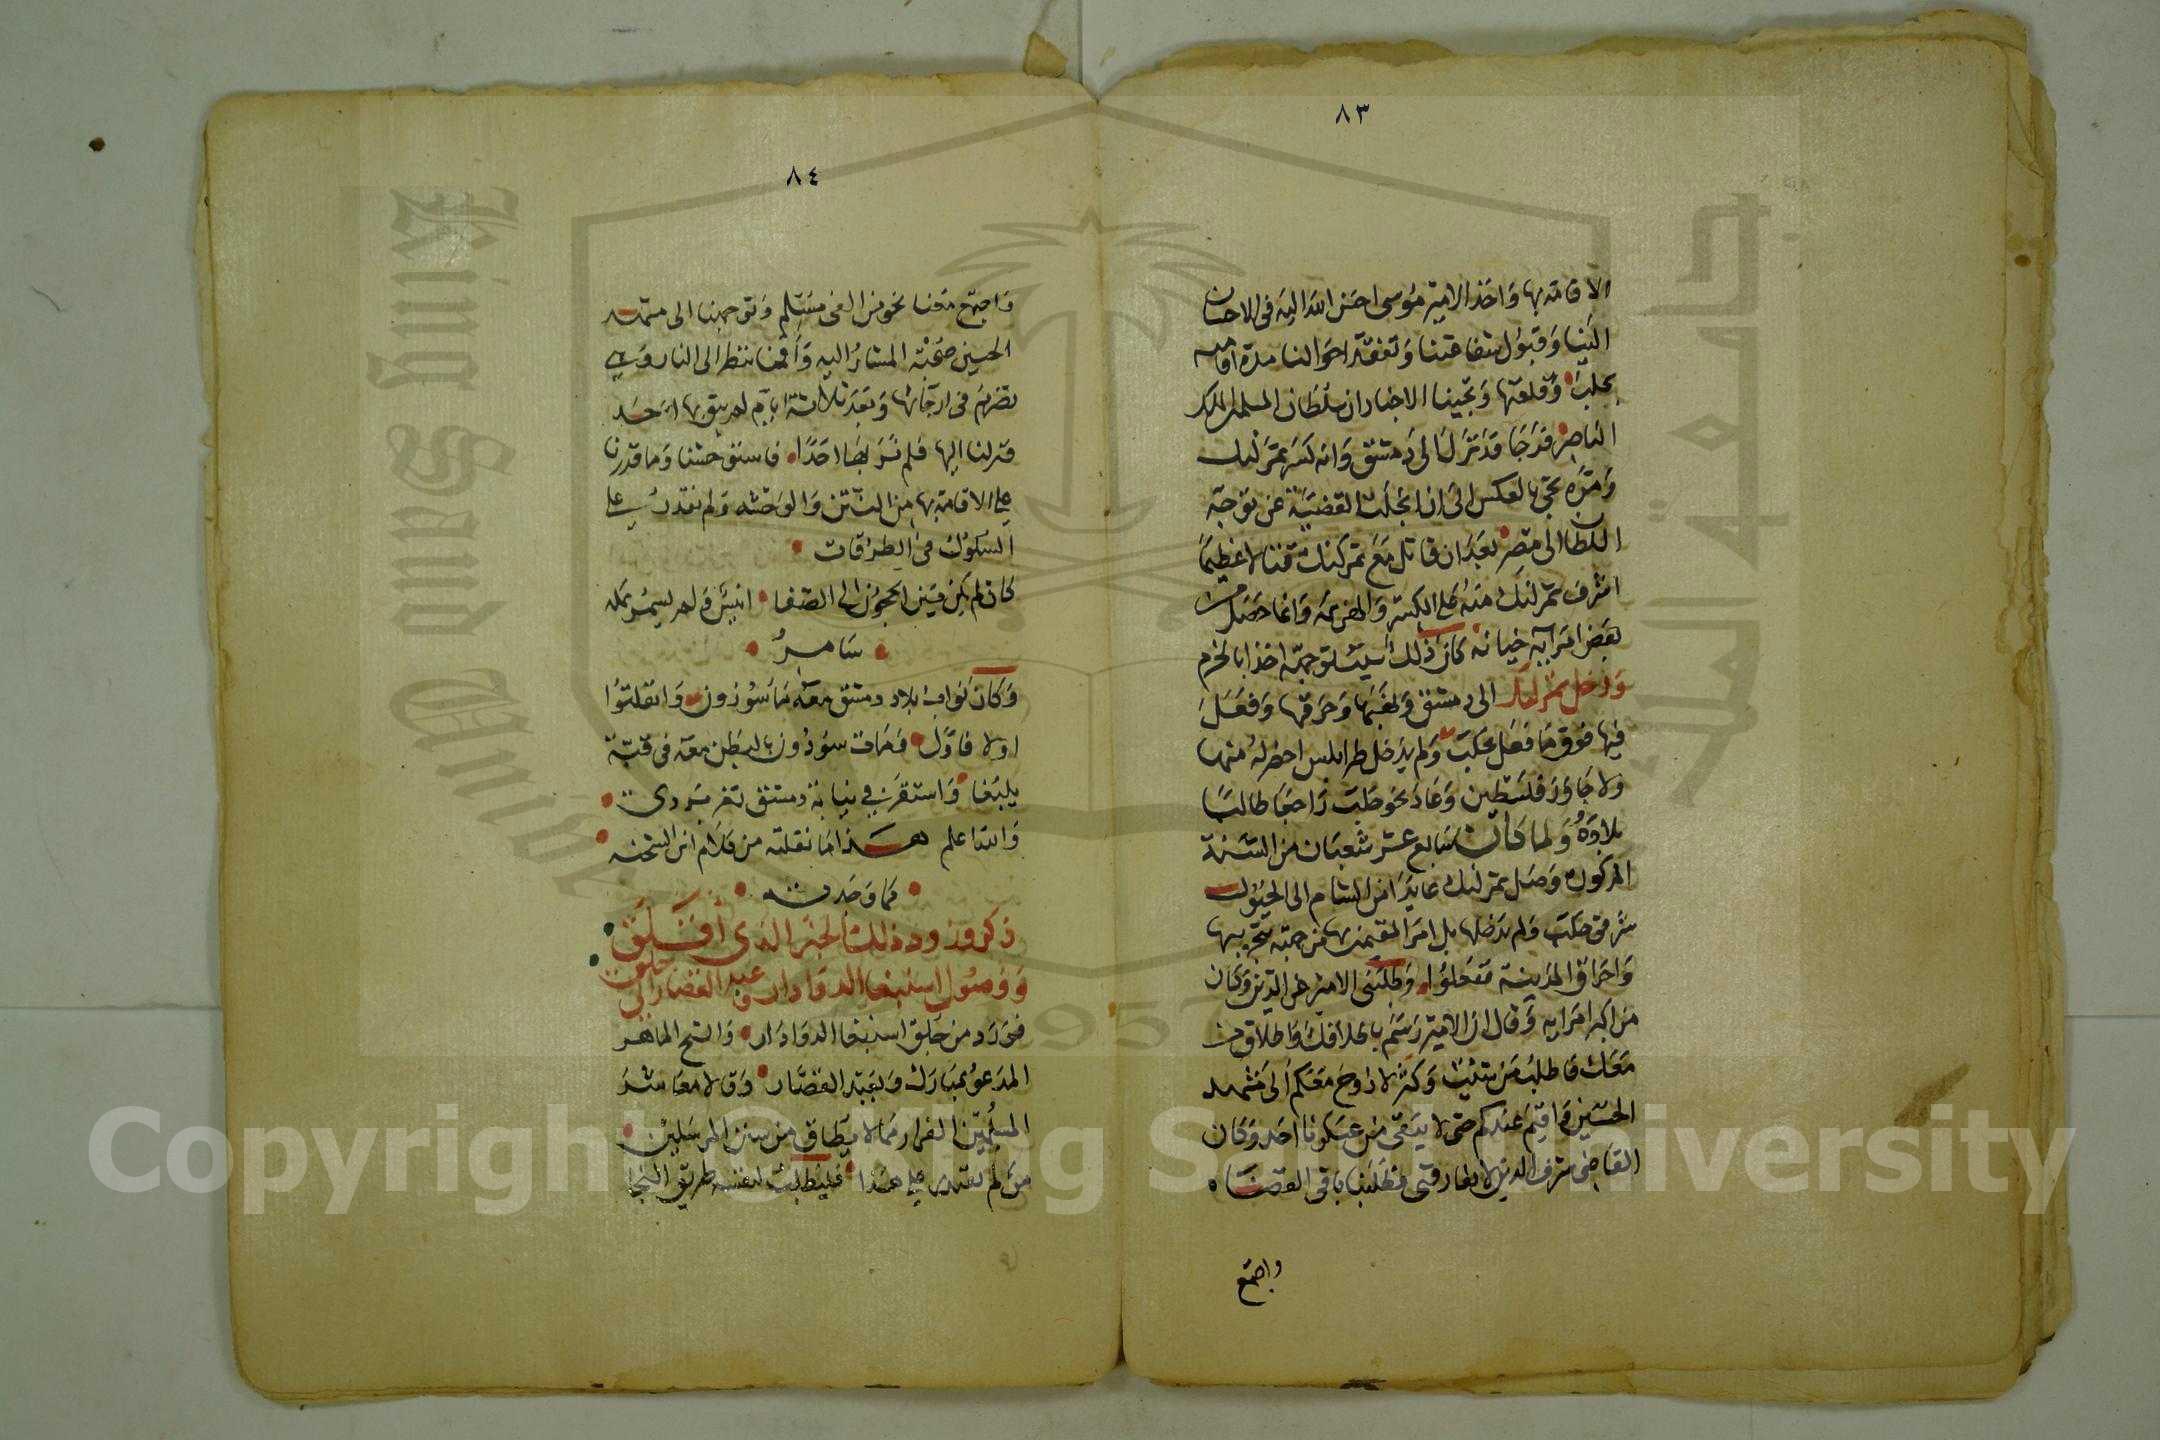 ٨٣
الاقامة بها وَاخذ الامير مُوسى احسَن الله اليه فى الاحسان
الينا وَقبُول شفاعتنا وَتفقد احوالنا مدة اقامته
بحلبَ وَقلعتها وَتجينا الاخبار ان سُلطان المسلمين الملك
الناصر فرَجا قد نزل الى دمشق وَانه كسَر تمرلنك
وَمَرّة تجى بالعكس الى ان انجلَت القضيّة عن توجّه
السلطان الى مِصر بعد ان قاتل مَع تمرلنك قتالا عظيمًا
اشرف تمرلنك منهُ على الكسرة وَالهزيمة وَانما حصَل من
بعَض امرَايه خيانة كان ذلك سبب توجهه اخذا بالحزم
وَدخل تمرلنك الى دمشق وَنهبَها وَحَرقها وَفعَلَ
فيهَا فوق مَا فعل بحَلبَ وَلم يدخل طرابلس احضر له منها
ولا جَاوَز فلسَطين وَعاد نحو حَلبَ رَاجعًا طالبًا
بلادَهُ وَلما كان سَابع عشر شعبَان من السَّنة
المذكوره وَصَل تمرلنك عايدًا من الشام الى الجبُول
شرقى حلبَ وَلم يدخلها بل امرَ المقيمين بها من جهته بتخريبها
وَاحراق المدينة ففعَلوُا وَطلبَنى الامير عز الدين وَكان
من اكبر امرَايه وَقال ان الامير رَسَم باطلاقك وَاطلاق من
معَك فاطلبْ مَن شئتَ وَكثر لا رُوح معَكم الى مشهد
الحسَين وَاقيم عندكم حتى لا يبقى من عسكرنا احد وَكان
القاضى شرف الدين لا يفارقنى وَطلبنا باقى القضَاة
واجتمع
٨٤
وَاجتمَع معَنا نحو من الفى مسَلم وَتوجهنا الى مشهد
الحسين صُحْبة المشارُ اليه وَاَقمنا ننظر الى النار وَهى
تضرَم فى ارجَائها وَبعدَ ثلاثة ايام لم يبق بها احَد
فنزلنا اليها فلم نَرَ بهَا احَدًا فاستوحشنا وَما قدرنا
على الاقامة بها من النتن وَالوَحشه وَلم نقدر على
السُلوك فى الطرُقات
كان لم يكن بَين الحجون الى الصّفا انيس وَلم يسمُر بمكه
سَامرُ
وَكان نواب بلاد دمشق معَه مَاسُورون وَانفلتوُا
اولا فاوّل وَمات سودُون بالبطن معَه فى قبّة
يلبغا وَاستقرّ فى نيابة دمشق تغرى بردى
وَالله اعلم هَذا مَا نقلته من كلام ابن الشحنه
كما وَجَدته
ذكر ورود ذلك الخبر الذى اقلق
وَوُصُول اسنبغا الدوادار وعبد القصار الى جلق
فورَد من حَلب اسنبغا الدوَادَار وَالفتح الماهر
المدَعوّ بمبارَك وَبعَبد القصّار وَقالا معَاشرَ
المسلمين الفرار ممّا لا يطاق من سنن المرسَلين
من لم يقتدر على هَذا فليَطلبْ لنفسه طريق النجا